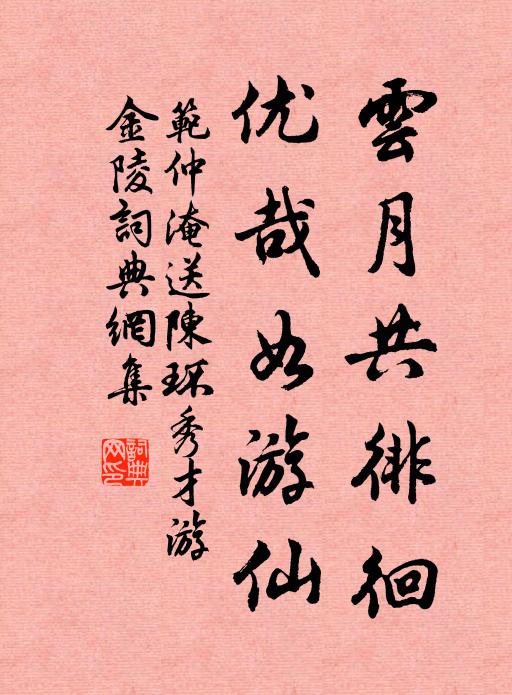 雲月共徘徊
优哉如游仙
範仲淹送陳环秀才游
金陵詞典網集
詞典網印